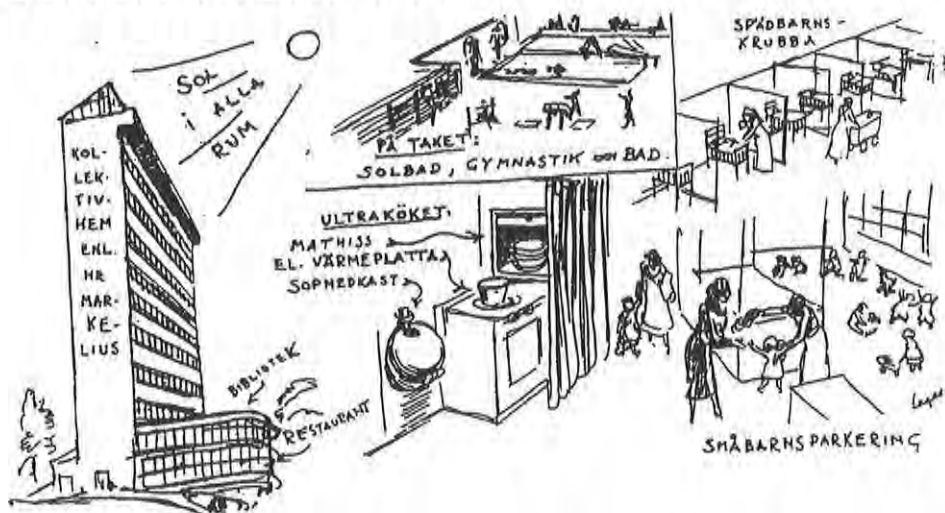 SOL
i ALLA
RUM
KOL-
LEK-
TIV-
HEM
ENL.
HR
MAR-
KE-
LIUS
BIBLIOTEK
RESTAURANT
PÅ TAKET:
SOLBAD, GYMNASTIK och BAD.
ULTRAKÖKET:
MATHISS
EL. VÄRMEPLATTA
SOPNEDKAST
SPÄDBARNS-
KRUBBA
SMÅBARNSPARKERING